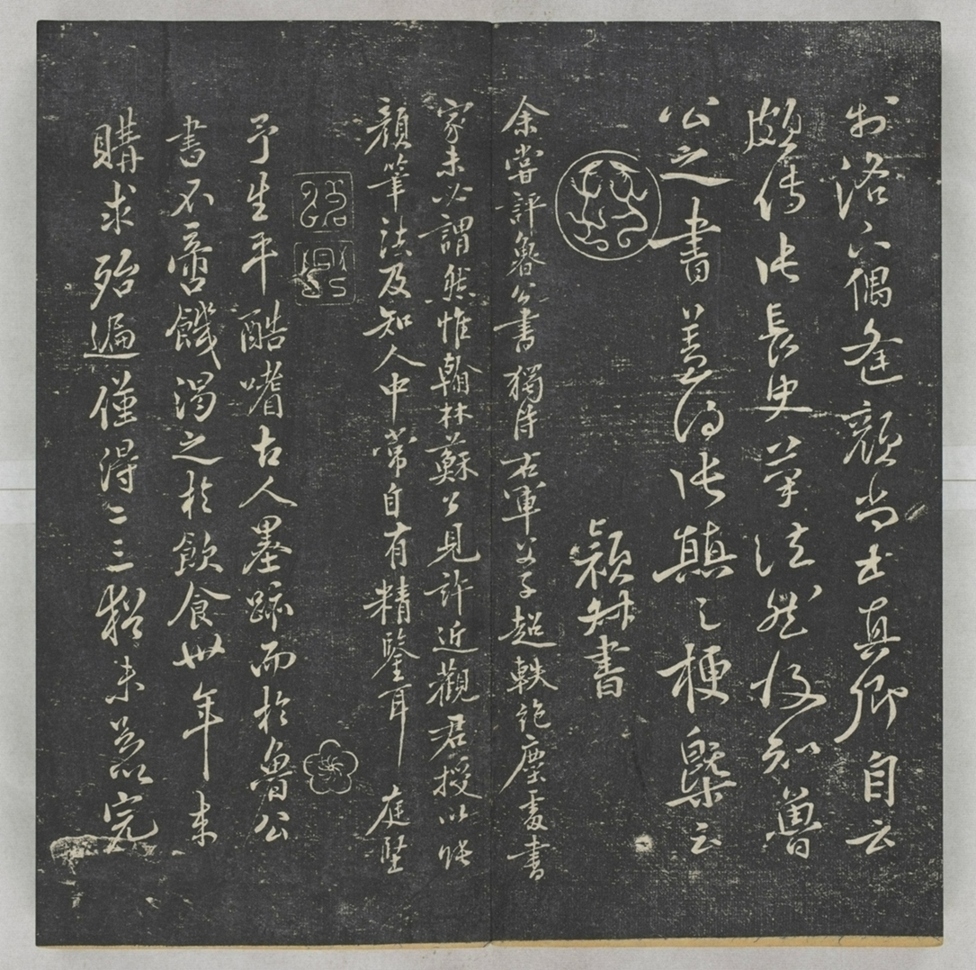 於洛下偶逢顏尚書真卿自云
頗傳張長史筆法然後知魯
公之書蓋得張顛之梗槩云
穎叔書
余嘗評魯公書獨得右軍父子超軼絕塵處書
家未必謂然惟翰林蘇公見許近觀君授以張
顏筆法及知人中常自有精鑒耳 庭堅
予生平酷嗜古人墨跡而於魯公
書不啻饑渴之於飲食卅年來
購求殆遍僅得二三猶未為完